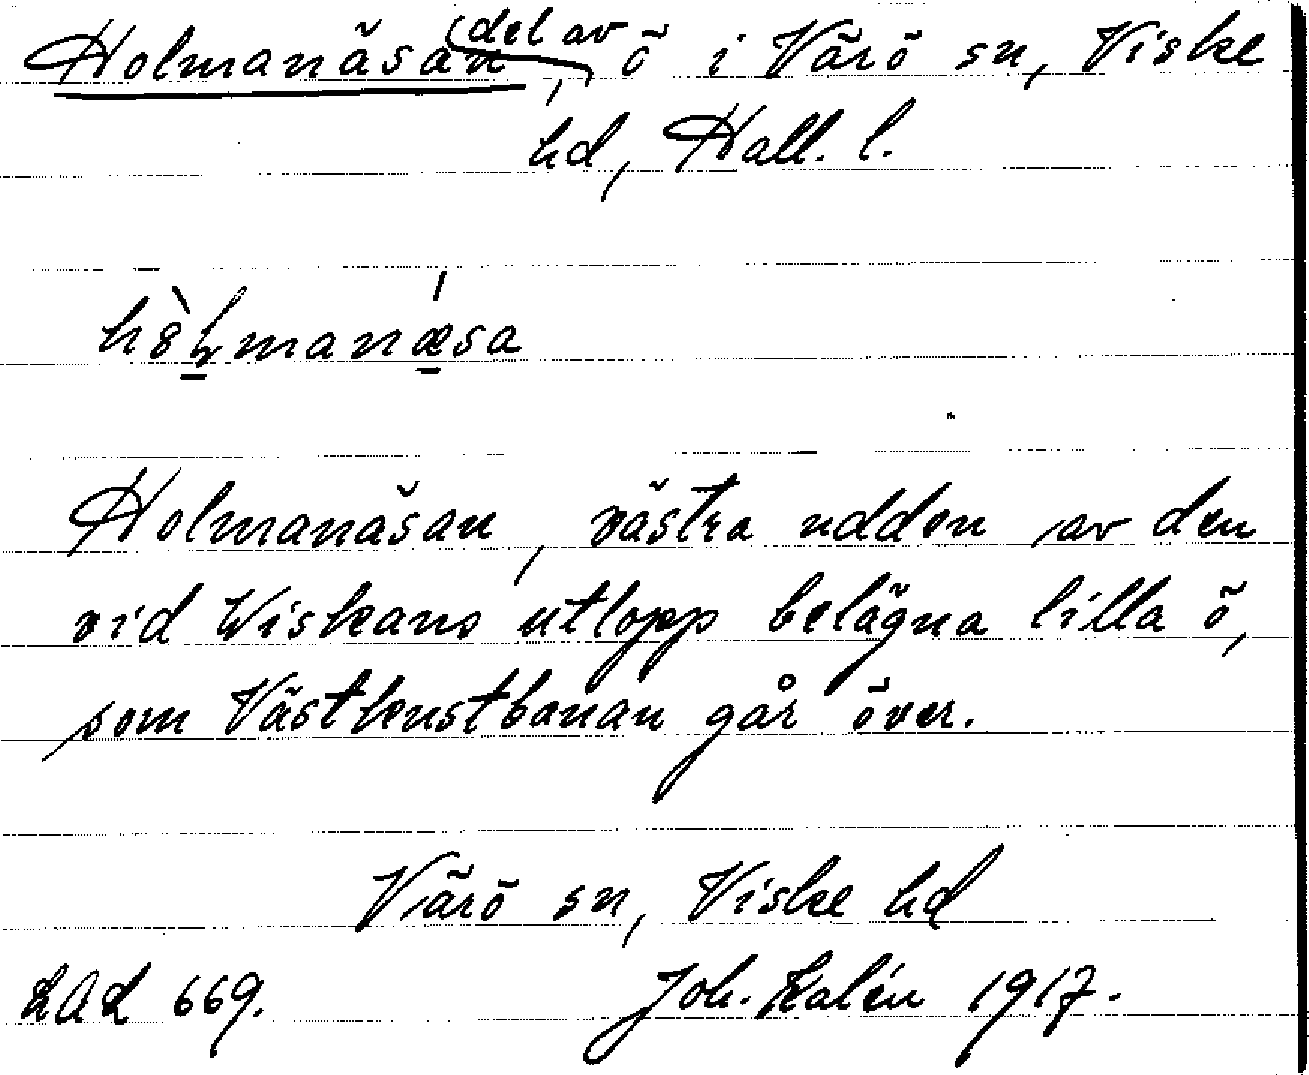 Holmanäsan, del av ö i Värö sn, Viske
hd, Hall. l.
Holmanäsan, västra udden av den
vid Wiskans utlopp belägna lilla ö,
som Västkustbanan går över.
Värö sn, Viske hd
LAL 669. Joh. Kalén 1917.